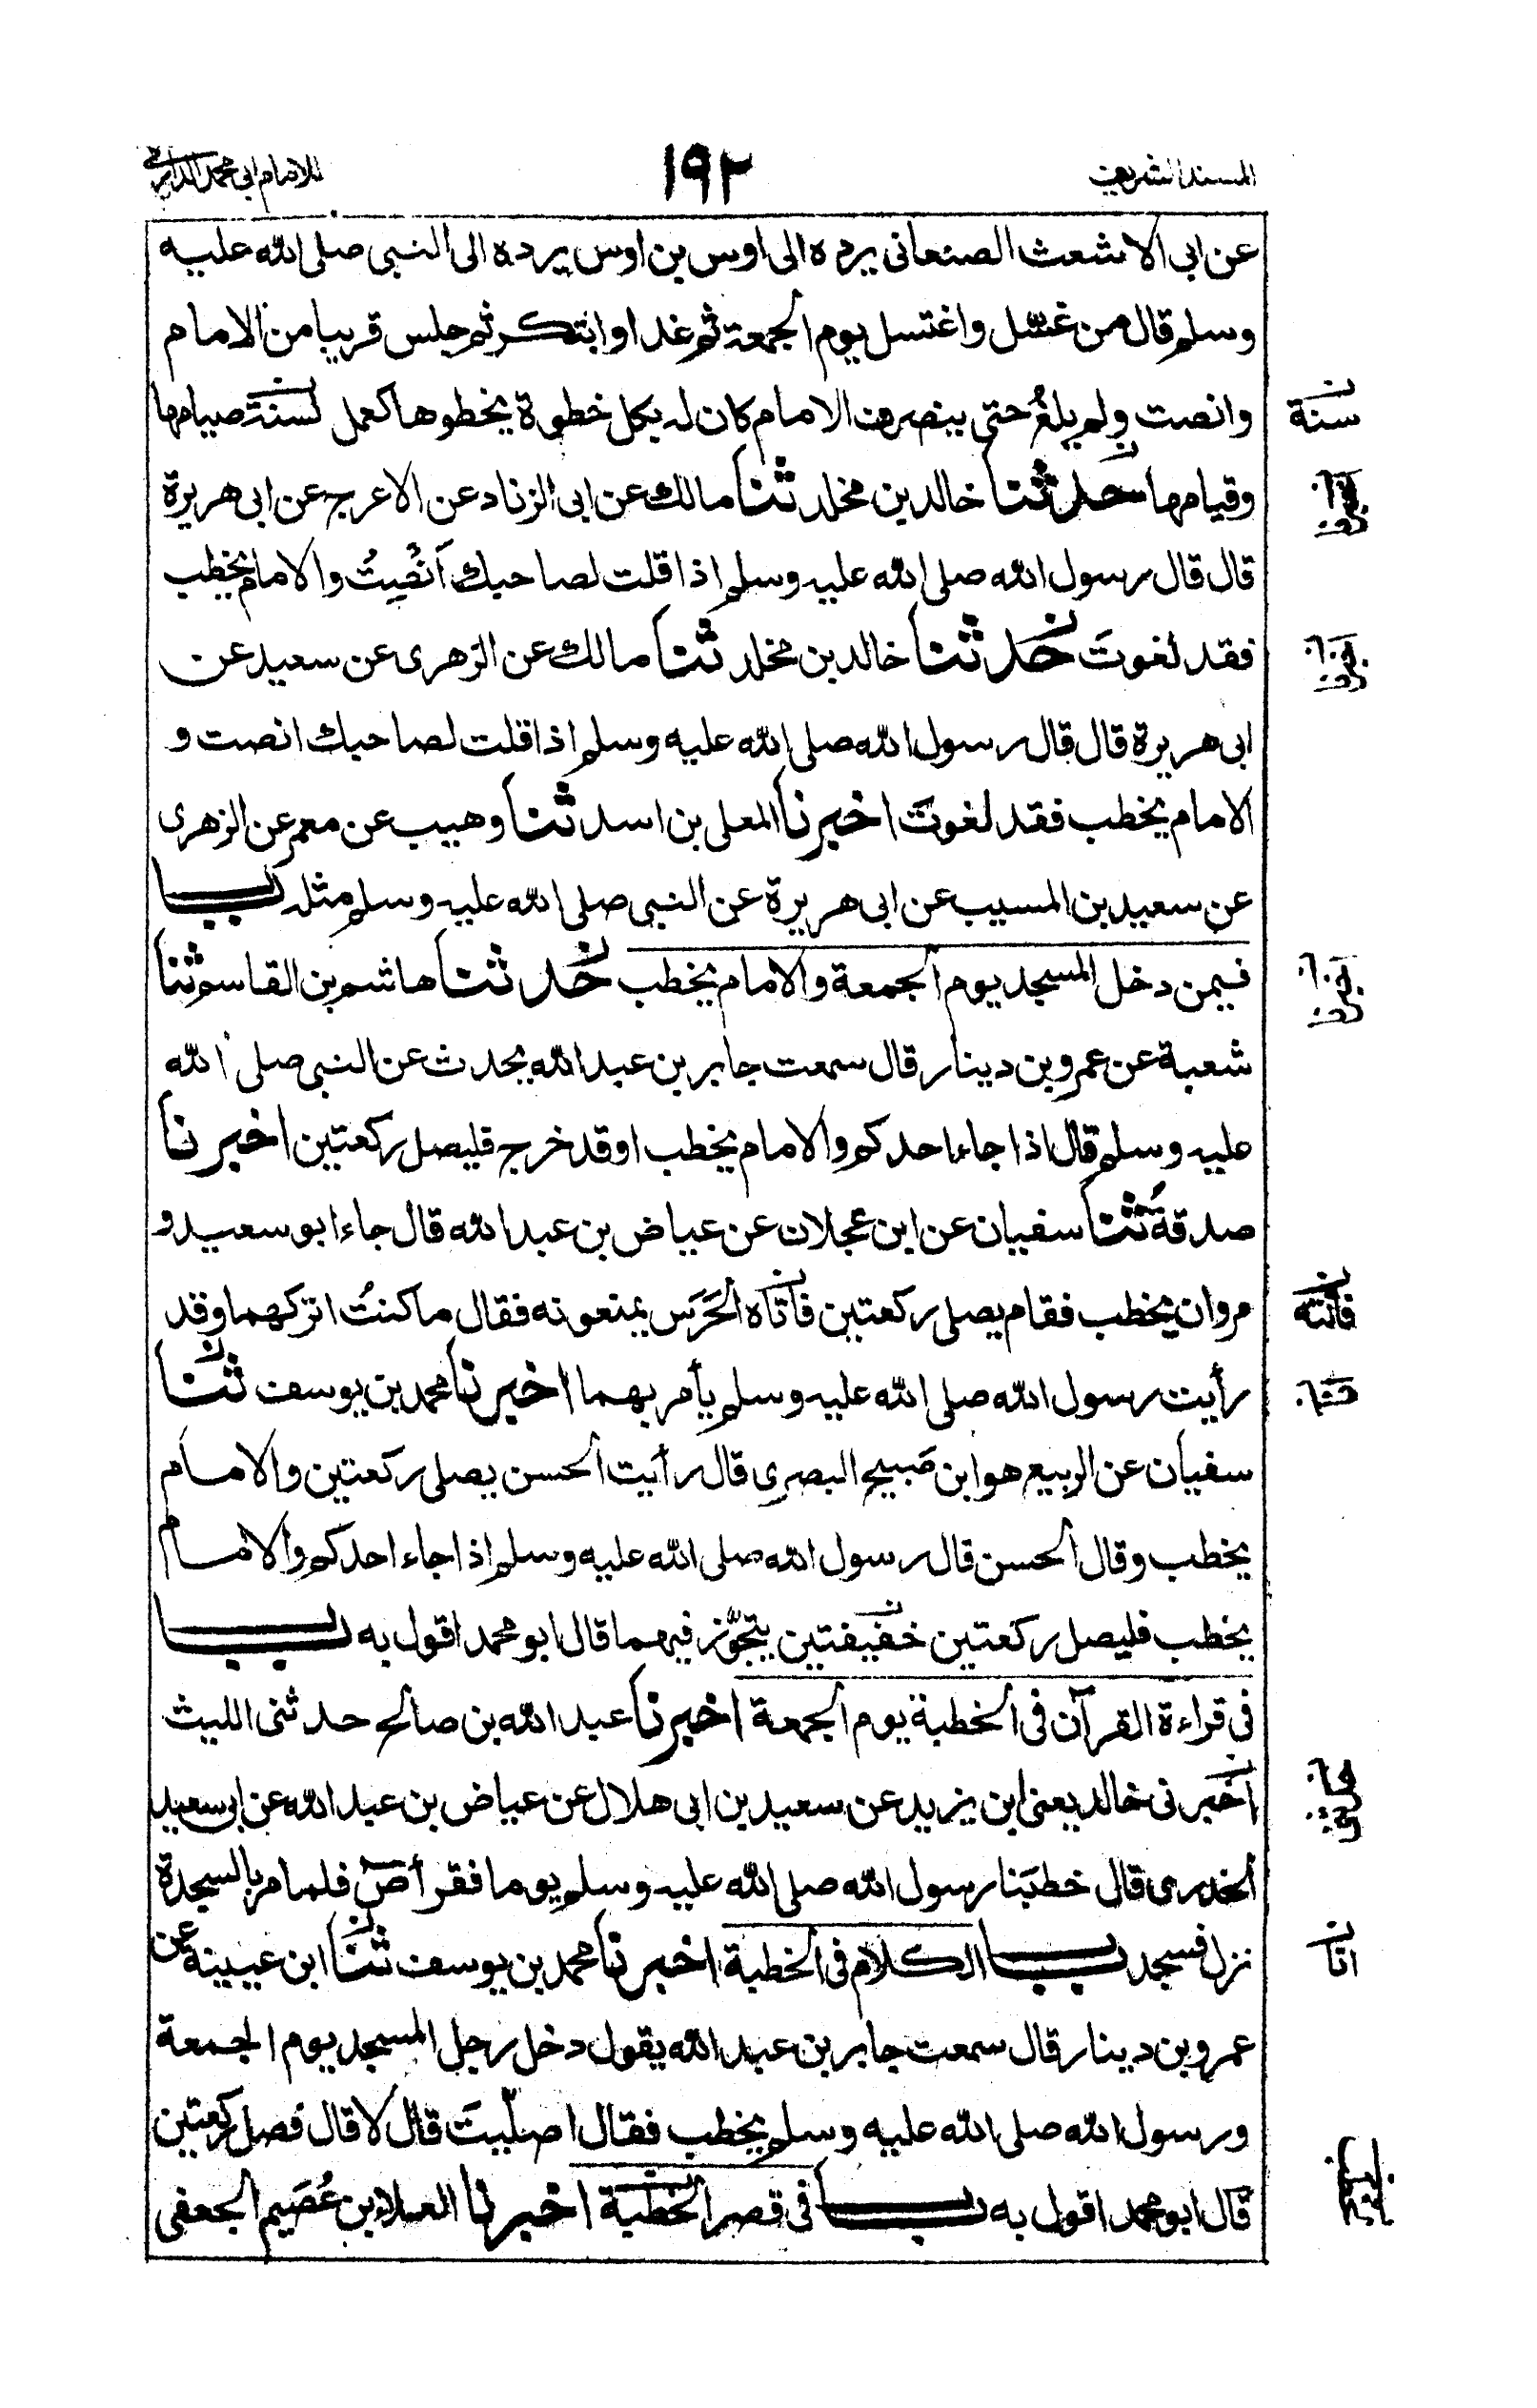 المسند الشريف ١٩٢ للامام ابي محمد الدارمي
عن ابى الاشعث الصنعانى يرده الى اوس بن اوس يرده الى النبى صلى الله عليه
وسلم قال من غسّل واغتسل يوم الجمعة ثم غدا وابتكر ثم جلس قريبا من الامام
وانصت ولم يلغُ حتى ينصرف الامام كان له بكل خطوة يخطوها كعمل لسنة صيامها
سنة
وقيامها حدثنا خالد بن مخلد ثنا مالك عن ابى الزناد عن الاعرج عن ابى هريرة
اخبرنا
قال قال رسول الله صلى الله عليه وسلم اذا قلت لصاحبك اَنْصِتْ والامام يخطب
فقد لغوتَ حدثنا خالد بن مخلد ثنا مالك عن الزهرى عن سعيد عن
اخبرنا
ابى هريرة قال قال رسول الله صلى الله عليه وسلم اذا قلت لصاحبك انصت و
الامام يخطب فقد لغوتَ اخبرنا المعلى بن اسد ثنا وهيب عن معمر عن الزهرى
عن سعيد بن المسيب عن ابى هريرة عن النبى صلى الله عليه وسلم مثله باب
فيمن دخل المسجد يوم الجمعة والامام يخطب حدثنا هاشم بن القاسم ثنا
اخبرنا
شعبة عن عمرو بن دينار قال سمعت جابر بن عبد الله يحدث عن النبى صلى الله
عليه وسلم قال اذا جاء احدكم والامام يخطب او قد خرج فليصل ركعتين اخبرنا
صدقةُ ثنا سفيان عن ابن عجلان عن عياض بن عبد الله قال جاء ابو سعيد و
مروان يخطب فقام يصلى ركعتين فأتاه الحَرَس يمنعونه فقال ما كنتُ اتركهما وقد
فأتته
رأيت رسول الله صلى الله عليه وسلم يأمر بهما اخبرنا محمد بن يوسف ثنا
سفيان عن الربيع هو ابن صَبيح البصرى قال رأيت الحسن يصلى ركعتين والامام
يخطب وقال الحسن قال رسول الله صلى الله عليه وسلم اذا جاء احدكم والامام
يخطب فليصل ركعتين خفيفتين يتجوّز فيهما قال ابو محمد اقول به باب
فى قراءة القرآن فى الخطبة يوم الجمعة اخبرنا عبد الله بن صالح حدثنى الليث
اخبرنى خالد يعنى ابن يزيد عن سعيد بن ابى هلال عن عياض بن عبد الله عن ابى سعيد
الخدرى قال خطبَنا رسول الله صلى الله عليه وسلم يوما فقرأ صٓ فلما مر بالسجدة
نزل فسجد باب الكلام فى الخطبة اخبرنا محمد بن يوسف ثنا ابن عيينة عن
انا
عمرو بن دينار قال سمعت جابر بن عبد الله يقول دخل رجل المسجد يوم الجمعة
ورسول الله صلى الله عليه وسلم يخطب فقال اصلّيتَ قال لا قال فصل ركعتين
قال ابو محمد اقول به باب فى قصر الخطبة اخبرنا العلاء بن عُصَيم الجعفى